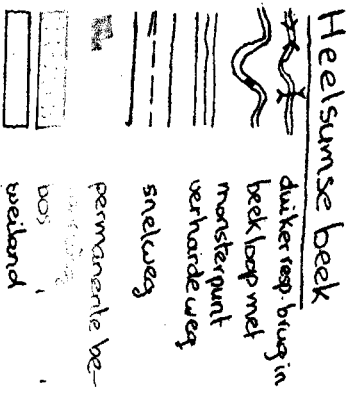 Heelsumse beek
duiker resp. brug in
beekloop met
monsterpunt
verharde weg
snelweg
permanente be-
bos
weiland